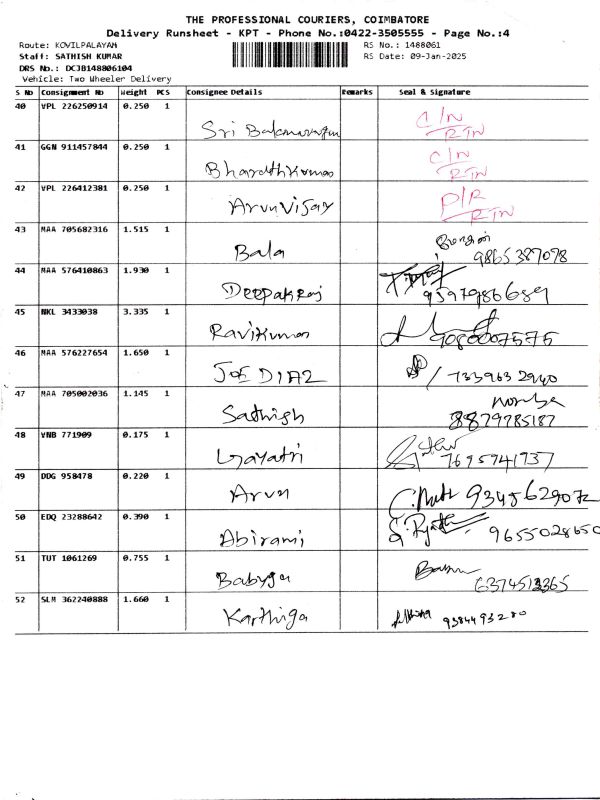 THE PROFESSIONAL COURIERS, COIMBATORE
Delivery Runsheet - KPT - Phone No.:0422-3505555 - Page No.:4
Route: KOVILPALAYAM RS No.: 1488061
Staff: SATHISH KUMAR RS Date: 09-Jan-2025
DRS No.: DCJB148806104
Vehicle: Two Wheeler Delivery
S No Consignment No Weight PCS Consignee Details Remarks Seal & Signature
40 VPL 226250914 0.250 1 C/N
Sri Balamurugan RTN
41 GGN 911457844 0.250 1 C/N
Bharathkumar RTN
42 VPL 226412381 0.250 1 D/R
ArunVijay RTN
43 MAA 705682316 1.515 1
Bala 9865387078
44 MAA 576410863 1.930 1
Deepakraj 9597986689
45 NKL 3433038 3.335 1
Ravikumar 9080007575
46 MAA 576227654 1.650 1
JOE DIAZ 7339632940
47 MAA 705002036 1.145 1
Sathish 8879785187
48 VNB 771909 0.175 1
Gayatri 7695741737
49 DDG 958478 0.220 1
Arun 9345629072
50 EDQ 23288642 0.390 1
Abirami 9655028650
51 TUT 1061269 0.755 1
Babyja 6374513365
52 SLM 362240888 1.660 1
Karthiga 9384493280